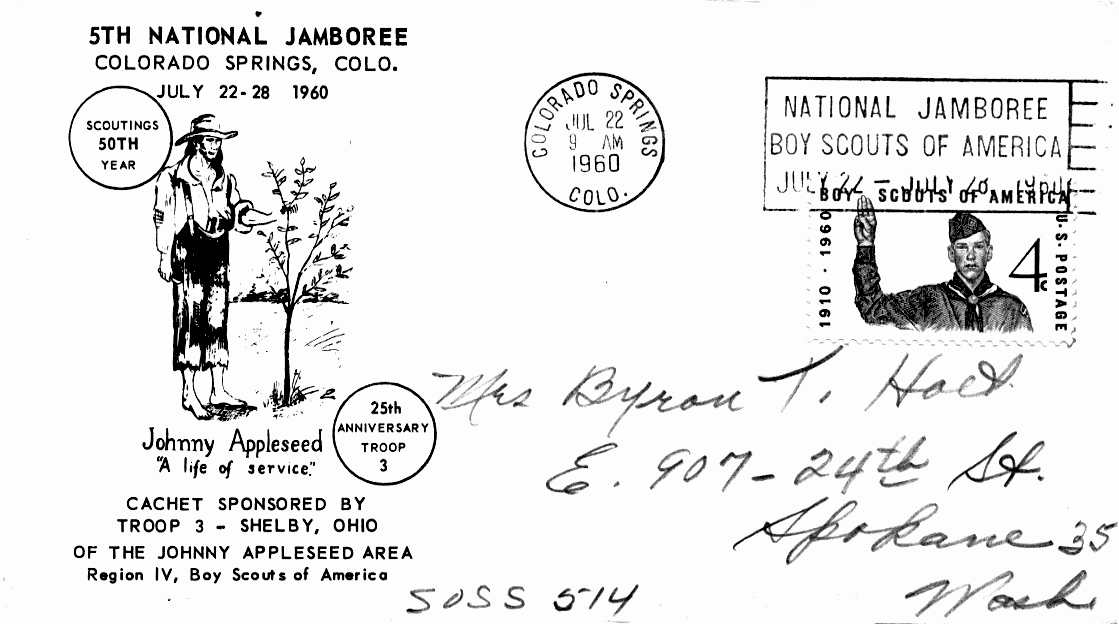 5TH NATIONAL JAMBOREE
COLORADO SPRINGS, COLO.
JULY 22-28 1960
SCOUTINGS
50TH
YEAR
Johnny Appleseed
"A life of service."
25th
ANNIVERSARY
TROOP
3
CACHET SPONSORED BY
TROOP 3 - SHELBY, OHIO
OF THE JOHNNY APPLESEED AREA
Region IV, Boy Scouts of America
COLORADO SPRINGS
JUL 22
9 AM
1960
COLO.
NATIONAL JAMBOREE
BOY SCOUTS OF AMERICA
JULY 22 - JULY 28, 1960
BOY SCOUTS OF AMERICA
1910 · 1960
4c
U.S. POSTAGE
Mrs Byron T. Holt
E. 907 - 24th St.
Spokane 35
Wash
SOSS 514